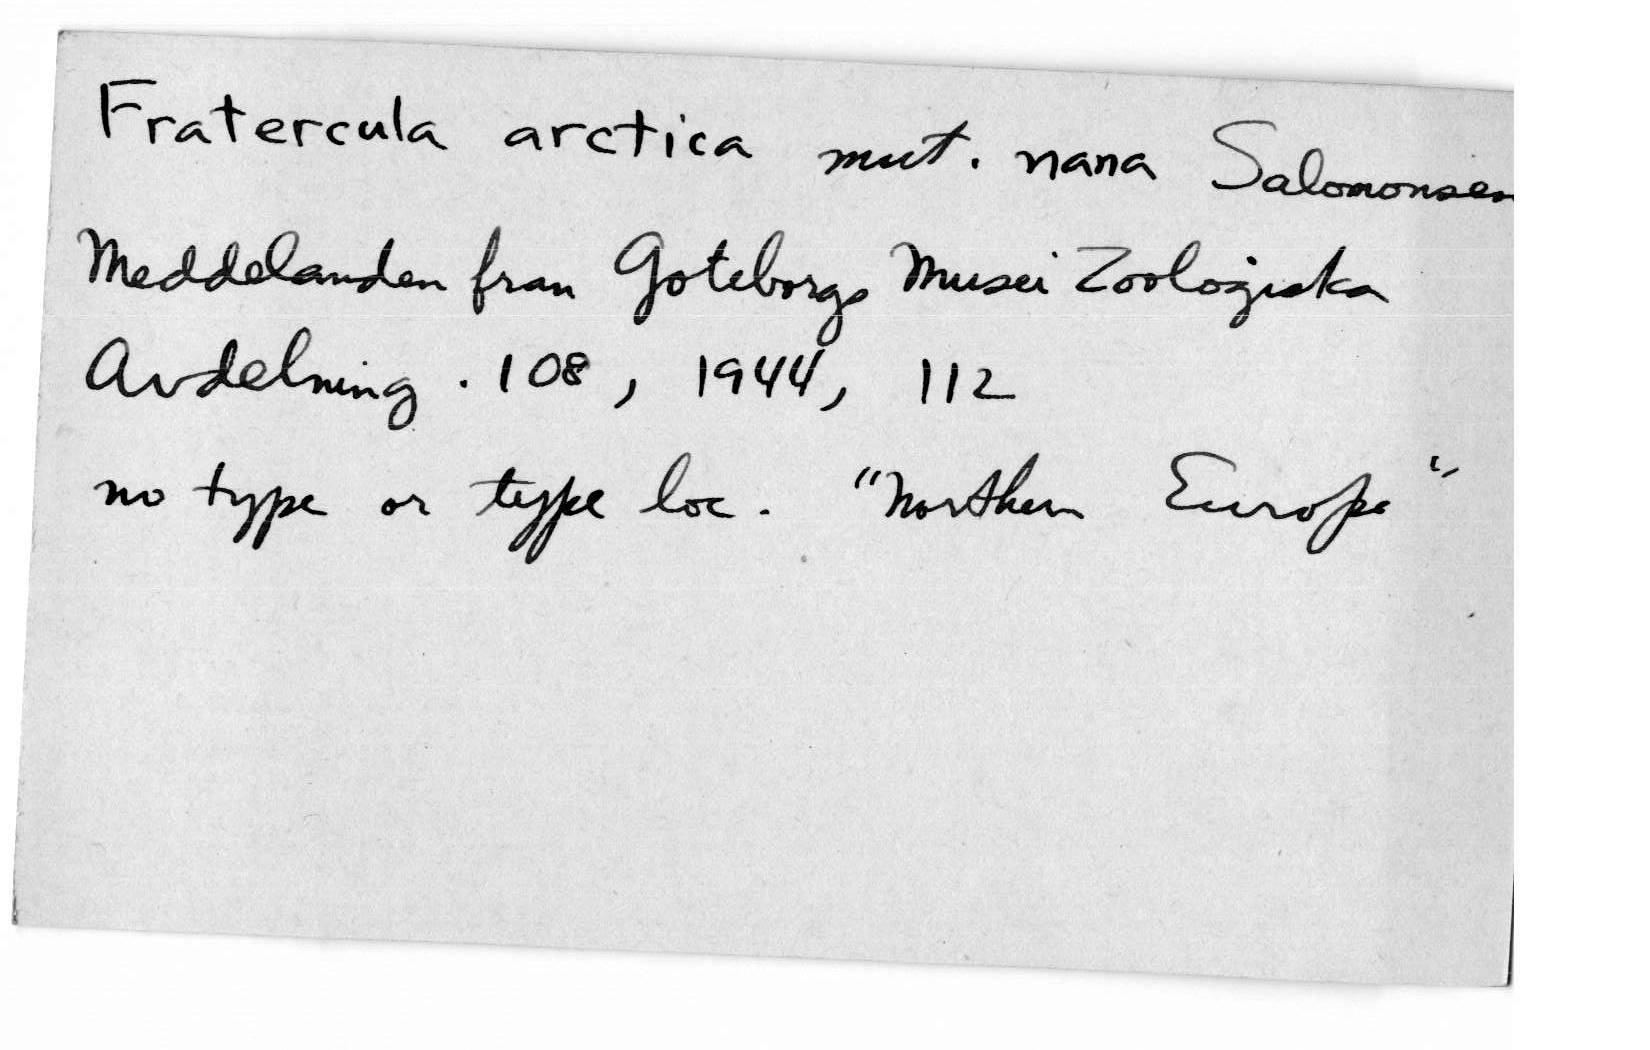 Fratercula arctica mut. nana Salomonsen
Meddelanden fran Goteborgs Musei Zoologiska
Avdelning. 108, 1944, 112
no type or type loc. "Northern Europe"